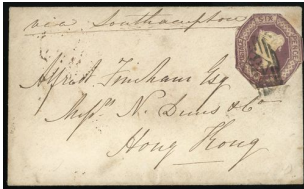 via Southampton
Alfred Fincham Esq
Messrs N. Duus & Co
Hong Kong